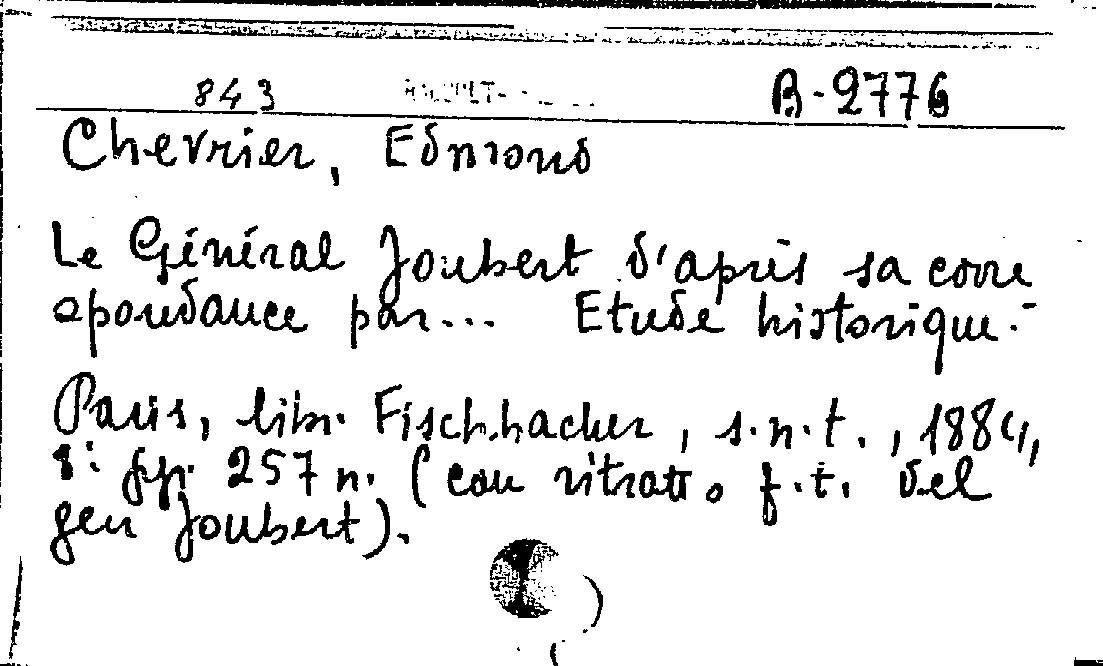 843 B-2776
Chevrier, Edmond
Le Général Joubert d'après sa corre
spondance par... Etude historique.-
Paris, libr. Fischbacher, s.n.t., 1884,
8° pp. 257 n. (con ritratto f.t. del
gen Joubert).